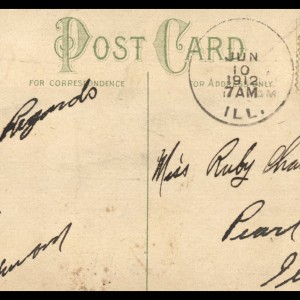 POST CARD
FOR CORRESPONDENCE
FOR ADDRESS ONLY
JUN
10
1912
7AM
ILL.
Regards
Miss Ruby Cha
Pearl